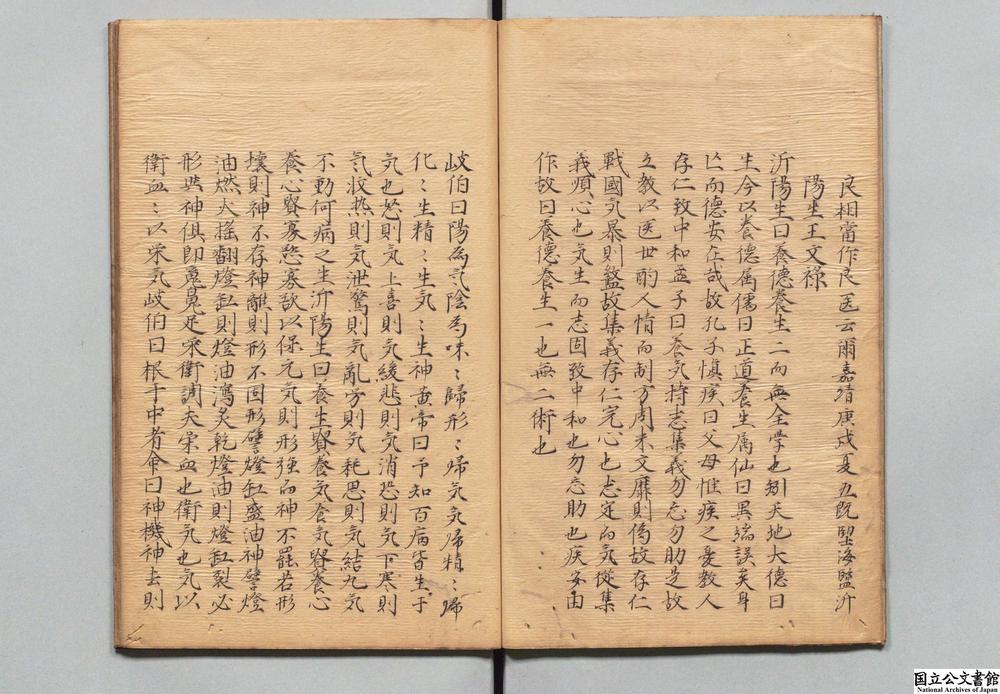 良相當作良医云爾嘉靖庚戌夏五既望海鹽沂
陽生王文祿
沂陽生曰養德養生二而無全学也矧天地大德曰
生今以養德属儒曰正道養生属仙曰異端誤矣身
亡而德安在哉故孔子慎疾曰父母惟疾之憂教人
存仁致中和孟子曰養気持志集義勿忘勿助是故
立教以医世酌人情而制方周末文靡則偽故存仁
戰國気暴則盩故集義存仁完心也志定而気従集
義順心也気生而志固致中和也勿忘助也疾安由
作故曰養德養生一也無二術也
岐伯曰陽為気陰為味〻歸形〻歸気気歸精〻歸
化〻生精〻生気〻生神黄帝曰予知百病皆生于
気也怒則気上喜則気緩悲則気消恐則気下寒則
気收热則気泄驚則気亂労則気耗思則気結九気
不動何病之生沂陽生曰養生賢養気養気賢養心
養心賢寡慾寡欲以保元気則形強而神不罷若形
壊則神不存神離則形不固形譬燈缸盛油神譬燈
油燃火搖翻燈缸則燈油瀉炙乾燈油則燈缸裂必
形与神俱即尭是栄衛調夫栄血也衛気也気以
衛血〻以栄気岐伯曰根于中者命曰神機神去則
国立公文書館
National Archives of Japan